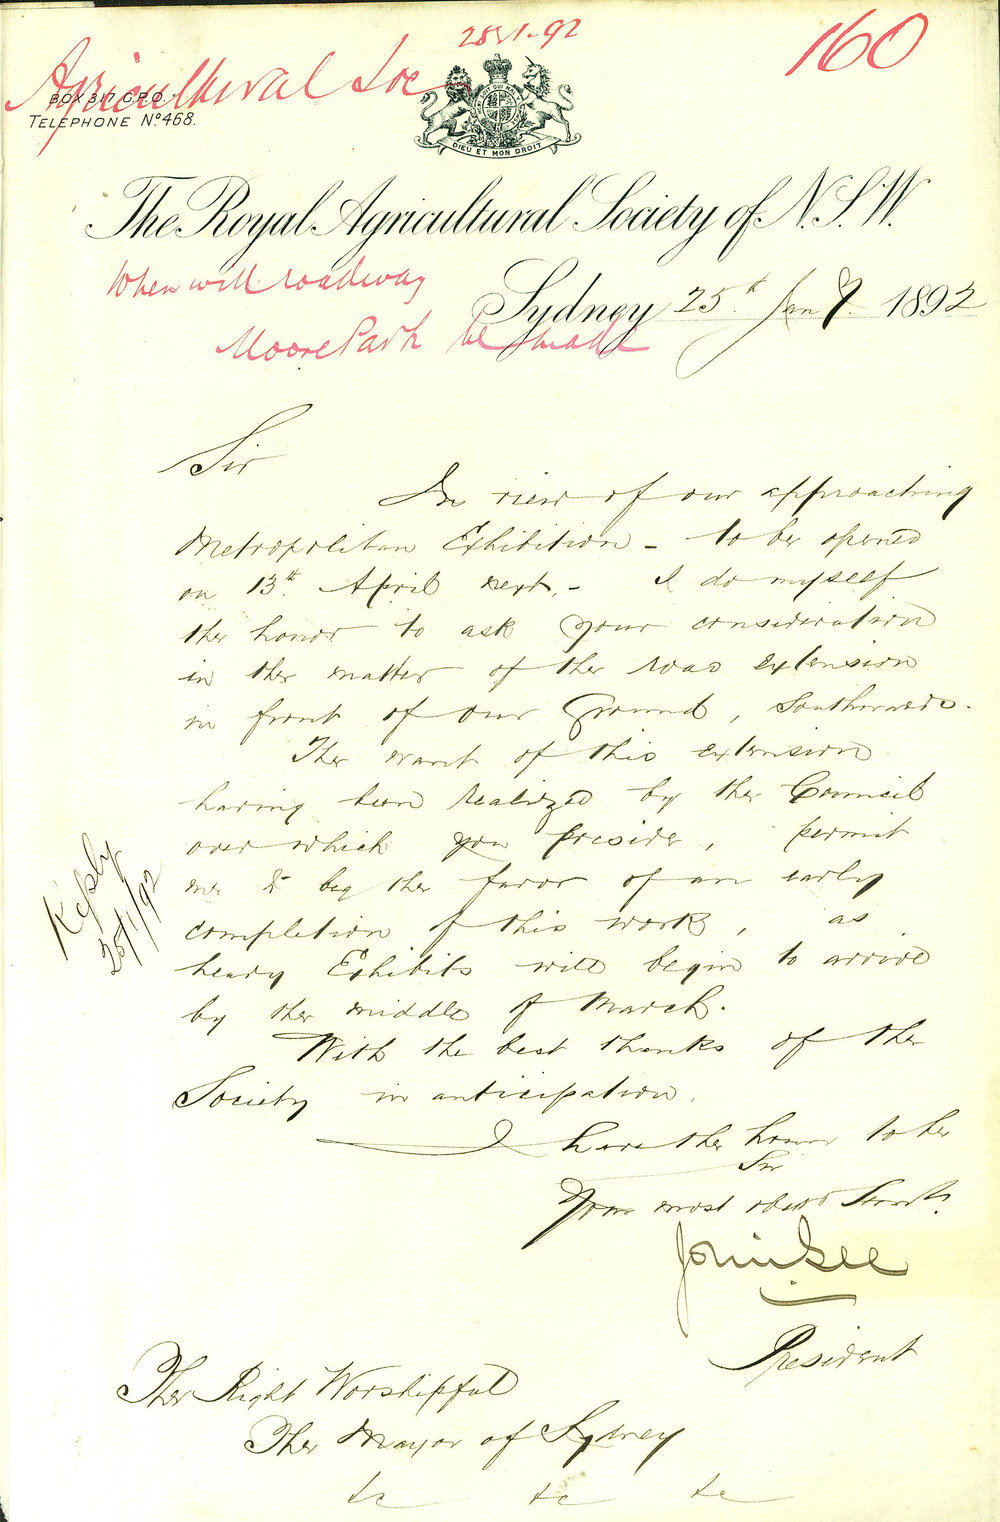 28/1-92
160
Agricultural Soc
BOX 317 G.P.O.
TELEPHONE No. 468.
DIEU ET MON DROIT
The Royal Agricultural Society of N.S.W.
When will roadway
Sydney 25th Jany. 1892
Moore Park be made
Sir
In view of our approaching
Metropolitan Exhibition - to be opened
on 13th April next, - I do myself
the honor to ask your consideration
in the matter of the road extension
in front of our Ground, Southwards.
The want of this extension
having been realized by the Council
over which you preside, permit
me to beg the favor of an early
completion of this work, as
heavy Exhibits will begin to arrive
by the middle of March.
With the best thanks of the
Society in anticipation.
I have the honor to be
Sir
Your most obed Servt.
President
Reply
25/1/92
The Right Worshipful
The Mayor of Sydney
&c &c &c